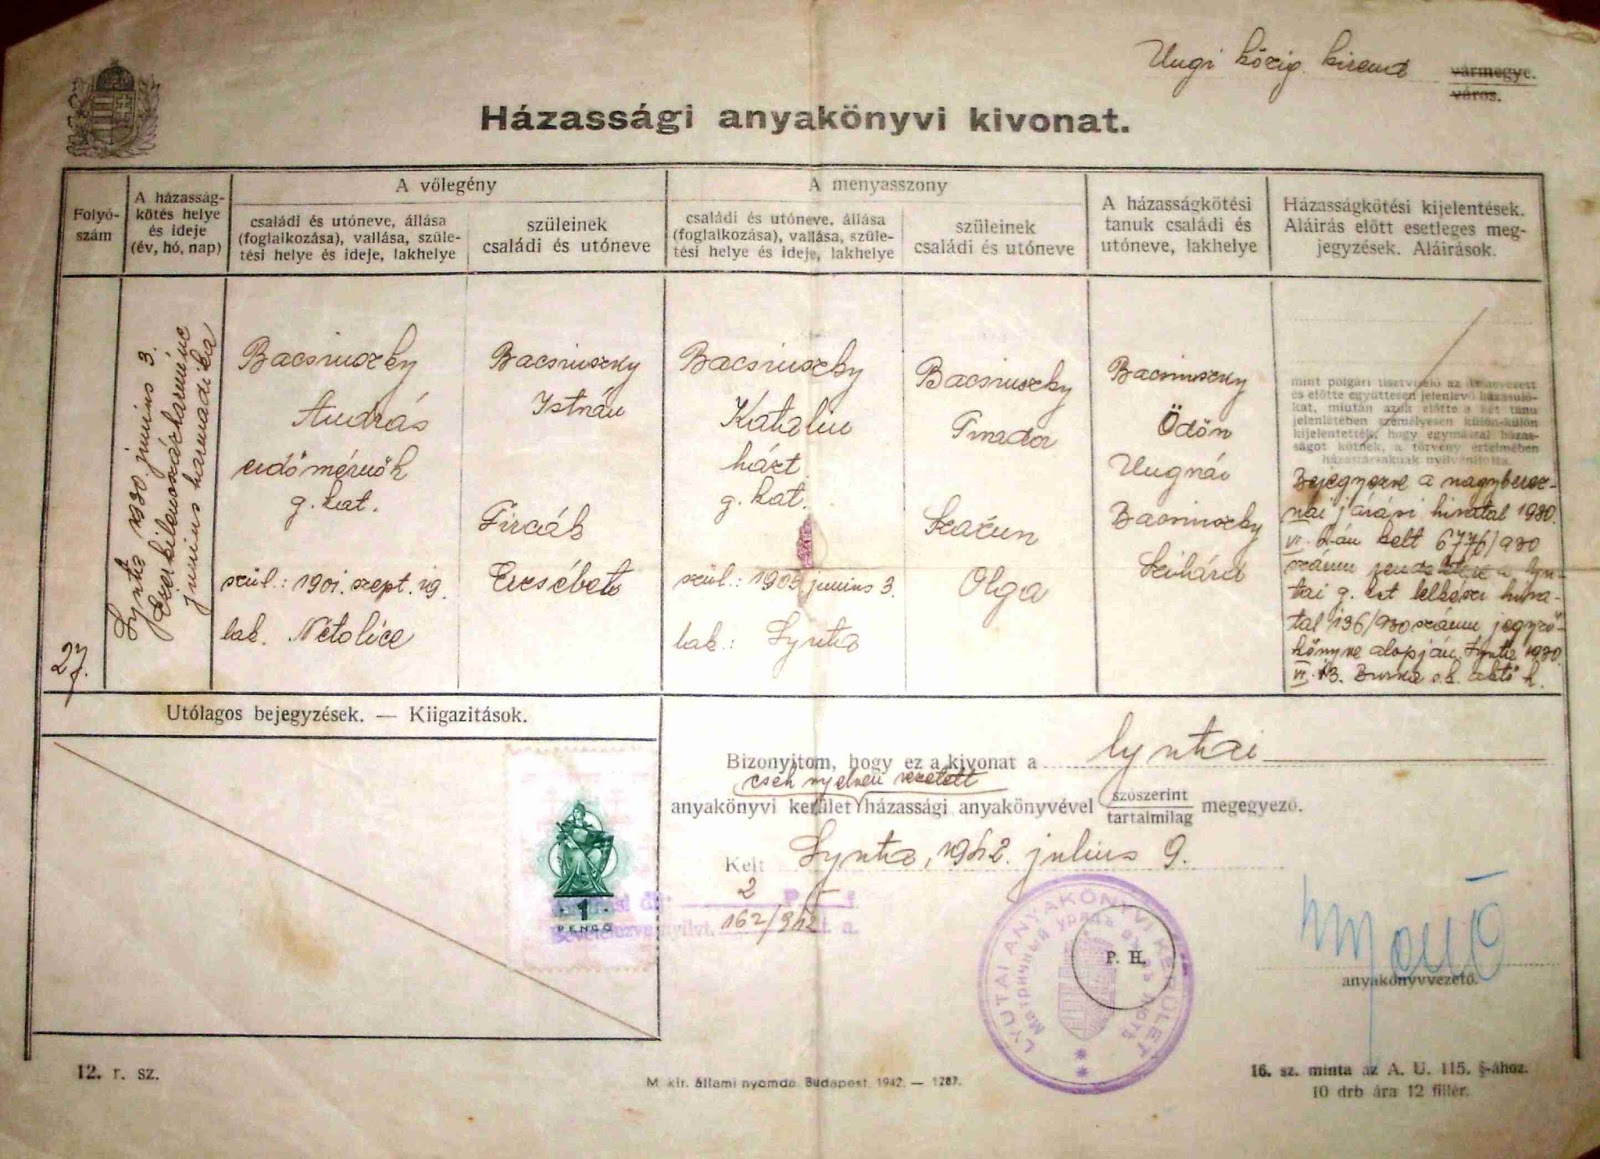 Ungi közig. kirend
vármegye.
város.
Házassági anyakönyvi kivonat.
Folyó-
szám
A házasság-
kötés helye
és ideje
(év, hó, nap)
A vőlegény
családi és utóneve, állása
(foglalkozása), vallása, szüle-
tési helye és ideje, lakhelye
szüleinek
családi és utóneve
A menyasszony
családi és utóneve, állása
(foglalkozása), vallása, szüle-
tési helye és ideje, lakhelye
szüleinek
családi és utóneve
A házasságkötési
tanuk családi és
utóneve, lakhelye
Házasságkötési kijelentések.
Aláírás előtt esetleges meg-
jegyzések. Aláírások.
27.
Lyuta 1930. junius 3.
Ezerkilencszázharminc
junius harmadika
Bacsinszky
András
erdőmérnök
g. kat.
szül.: 1901. szept. 19.
lak. Netolice
Bacsinszky
István
Fircák
Erzsébet
Bacsinszky
Katalin
házt.
g. kat.
szül.: 1909. junius 3.
lak.: Lyuta
Bacsinszky
Tivadar
Olga
Bacsinszky
Ödön
Ungvár
Bacsinszky
mint polgári tisztviselő az
és előtte együttesen jelenlevő házasuló-
kat, miután azok előtte a két tanu
jelenlétében személyesen külön-külön
kijelentették, hogy egymással házas-
ságot kötnek, a törvény értelmében
házastársaknak nyilvánította.
Bejegyezve a nagyberez-
nai járási hivatal 1930.
VI. 6-án kelt 6776/930
számu rendelete a lyu-
tai g. kat lelkészi hiva-
tal 136/930 számu jegyző-
könyve alapján. Lyuta 1930.
VI. 13.
Utólagos bejegyzések. — Kiigazitások.
Bizonyítom, hogy ez a kivonat a lyutai
cseh nyelven vezetett
anyakönyvi kerület házassági anyakönyvével szószerint
tartalmilag megegyező.
Kelt Lyuta, 1942. julius 9.
2 P
162/942
1
PENGŐ
LYUTAI ANYAKÖNYVI KERÜLET
P. H.
anyakönyvvezető.
12. r. sz.
M. kir. állami nyomda, Budapest. 1942. — 1287.
16. sz. minta az A. U. 115. §-ához.
10 drb ára 12 fillér.